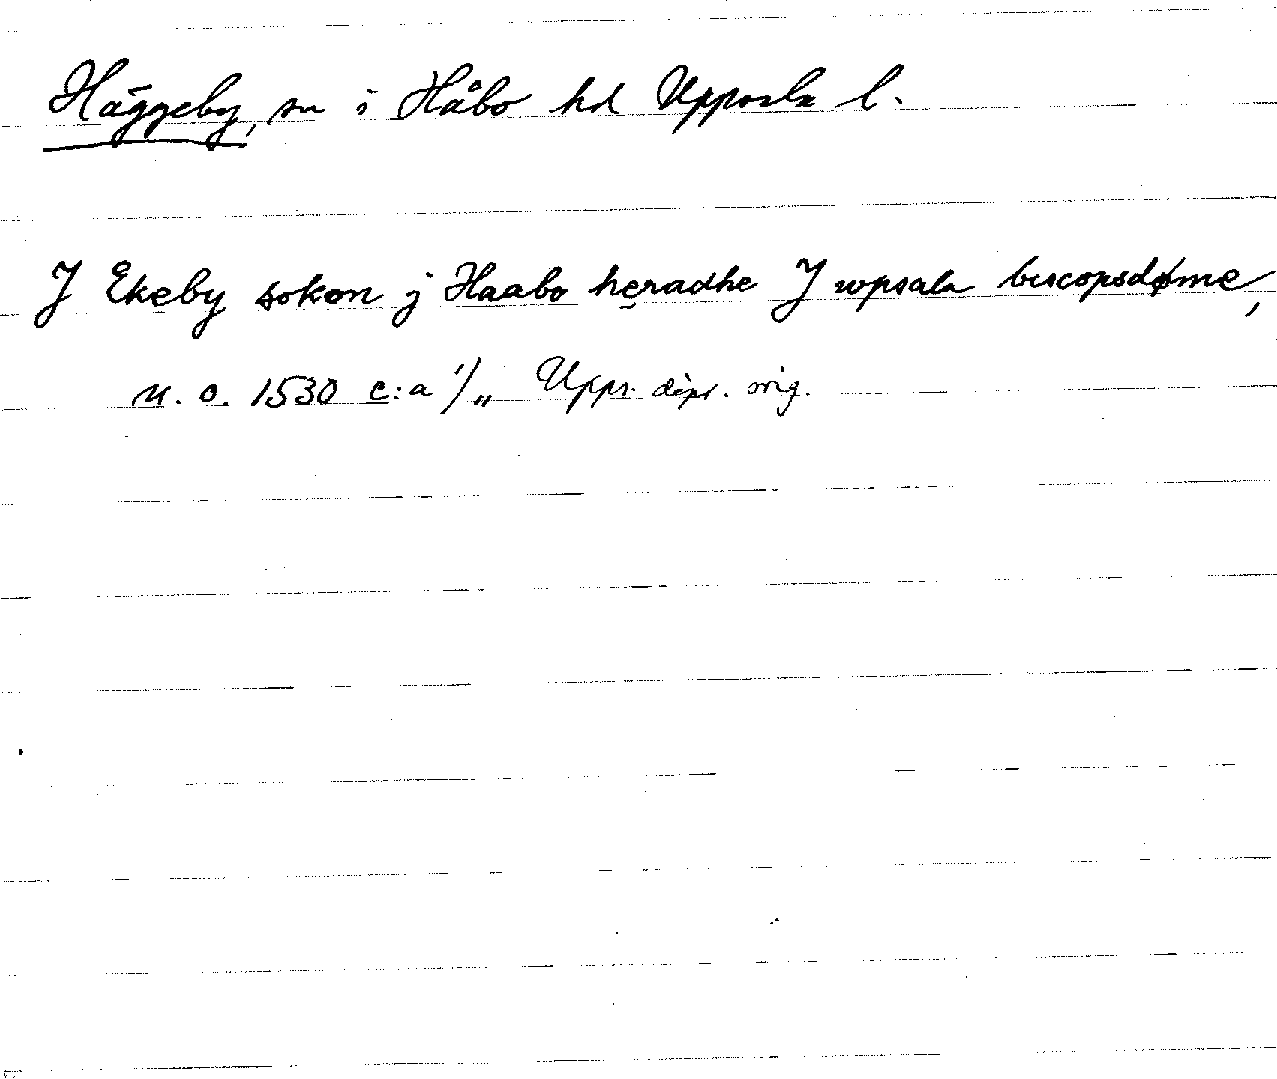 Häggeby, sn i Håbo hd Uppsala l.
J Ekeby sokon j Haabo heradhe J wpsala biscopsdøme,
u. o. 1530 c:a 1/11 Upps. dipl. orig.